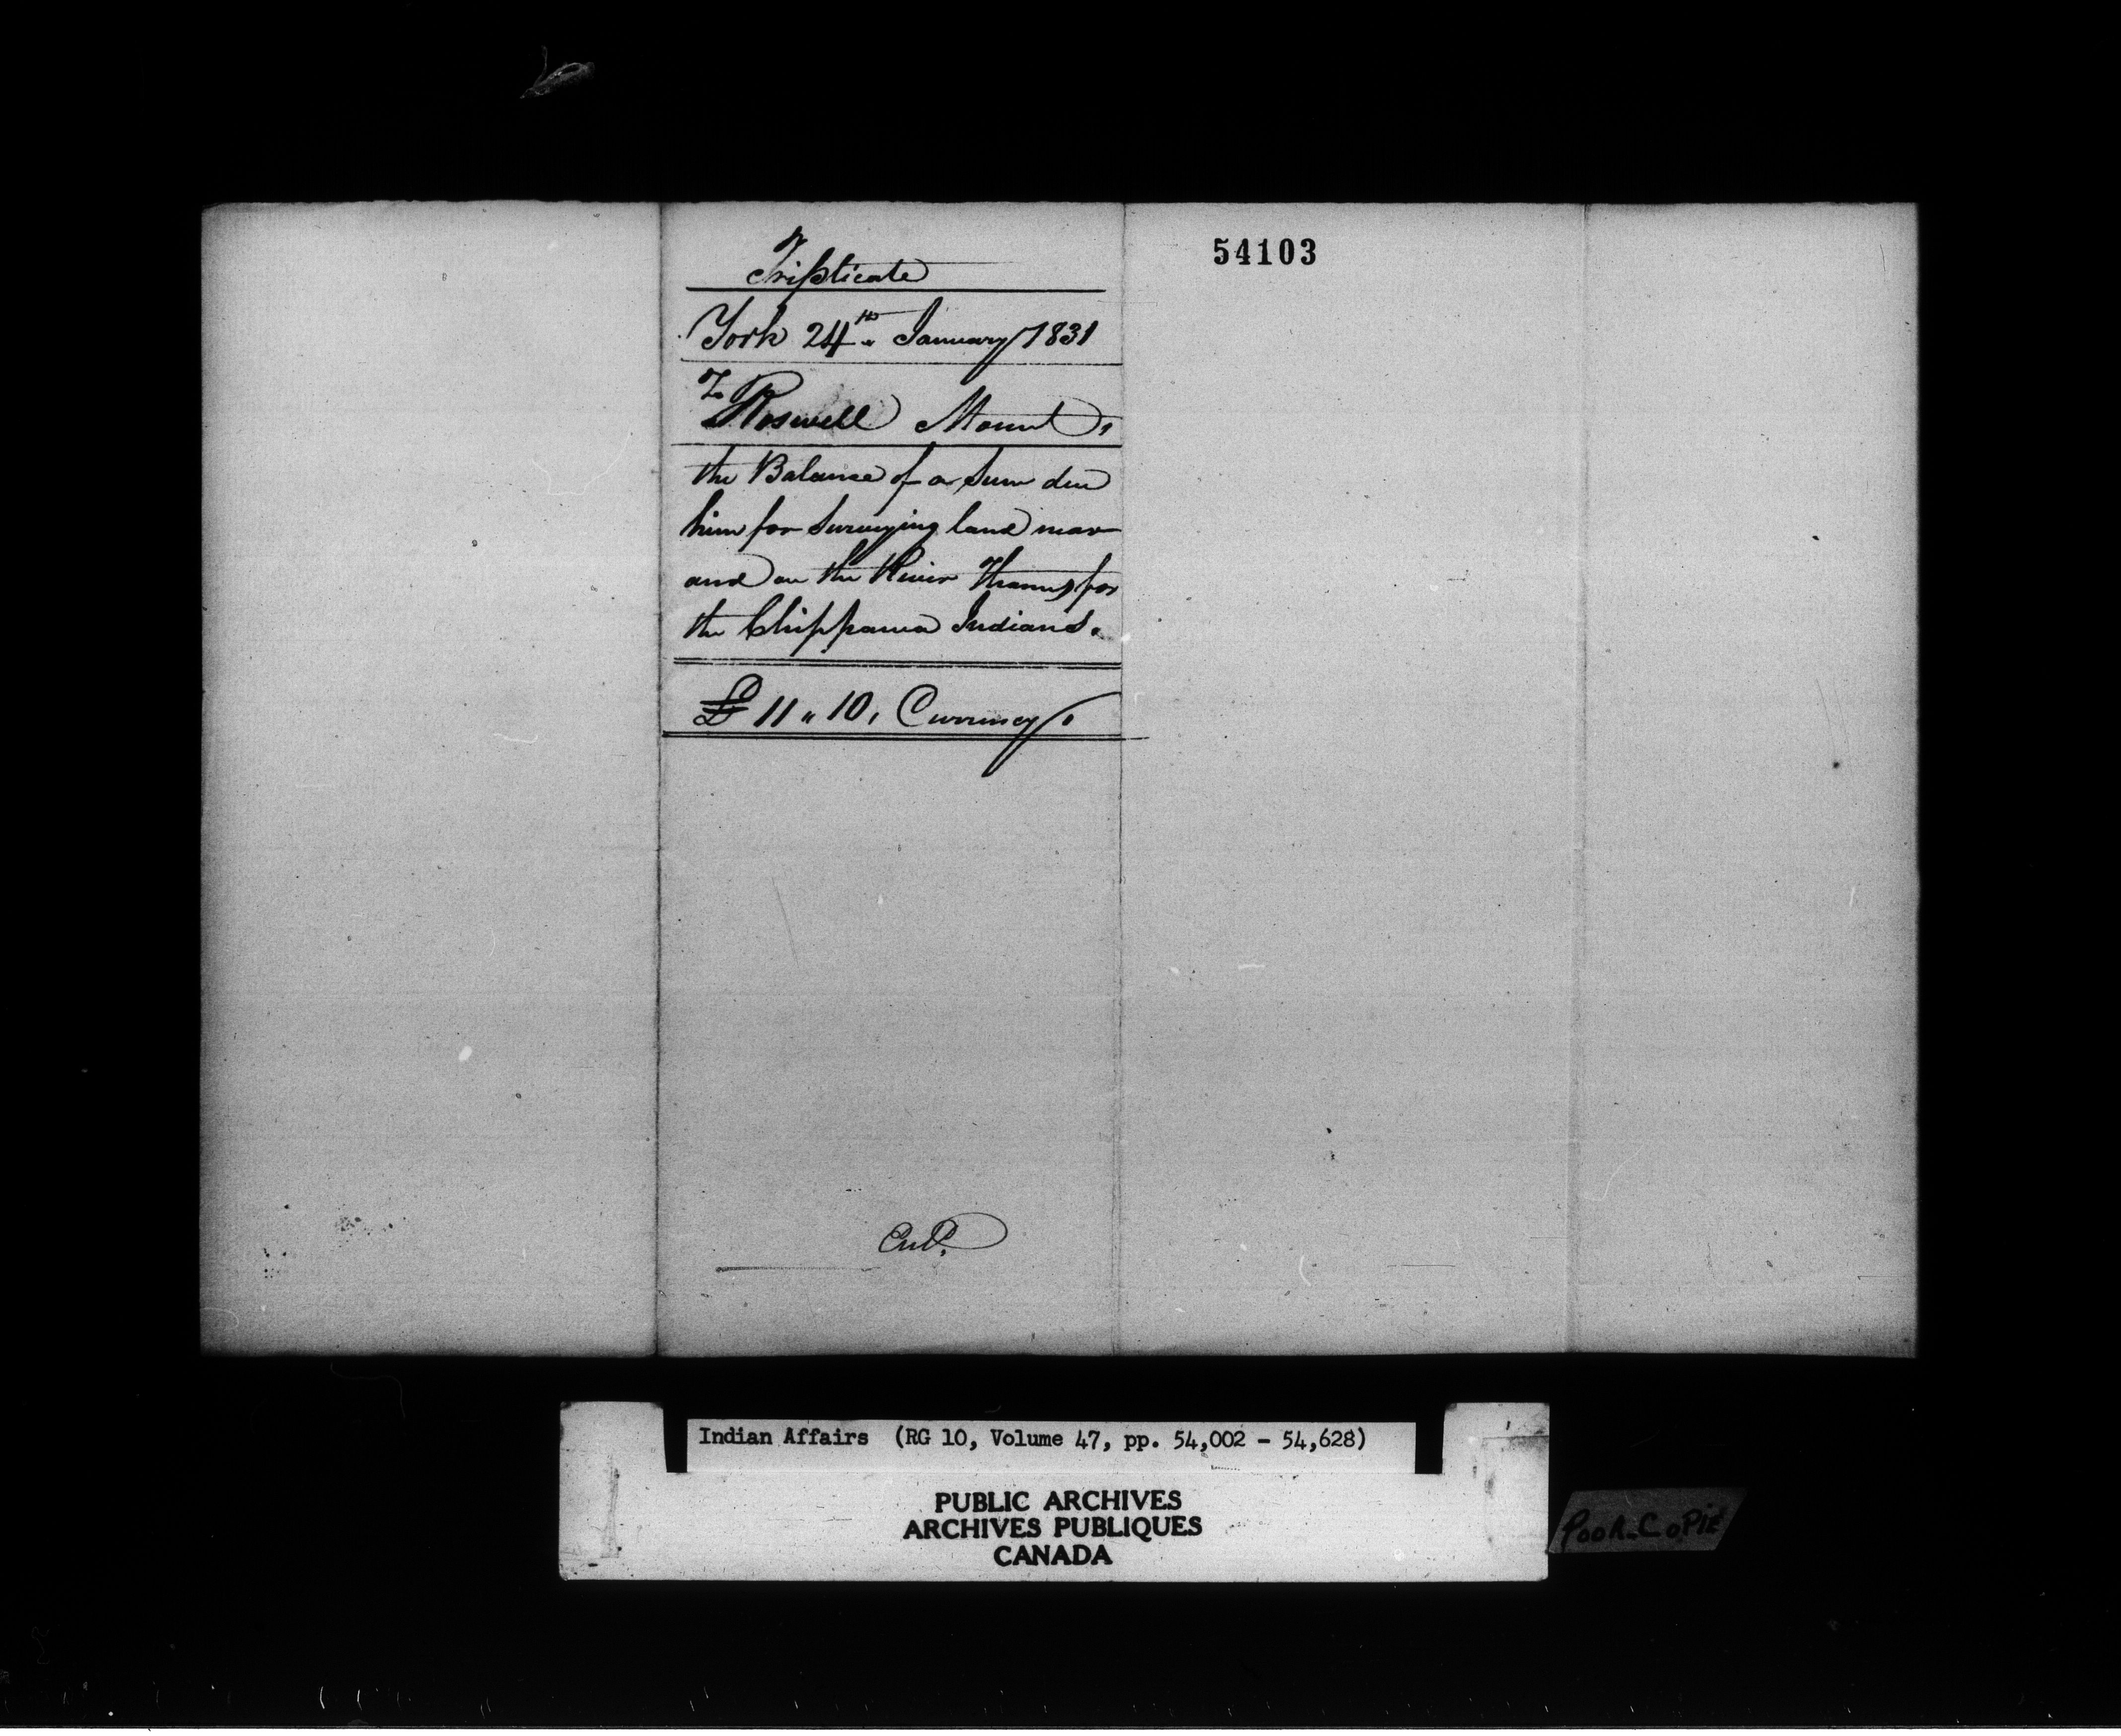 Triplicate
54103
York 24th January 1831
To
Roswell Mount,
the Balance of a Sum due
him for Surveying land near
and on the River Thames for
the Chippawa Indians.
£ 11 " 10, Currency.
Indian Affairs (RG 10, Volume 47, pp. 54,002 - 54,628)
PUBLIC ARCHIVES
ARCHIVES PUBLIQUES
CANADA
POOR COPIE